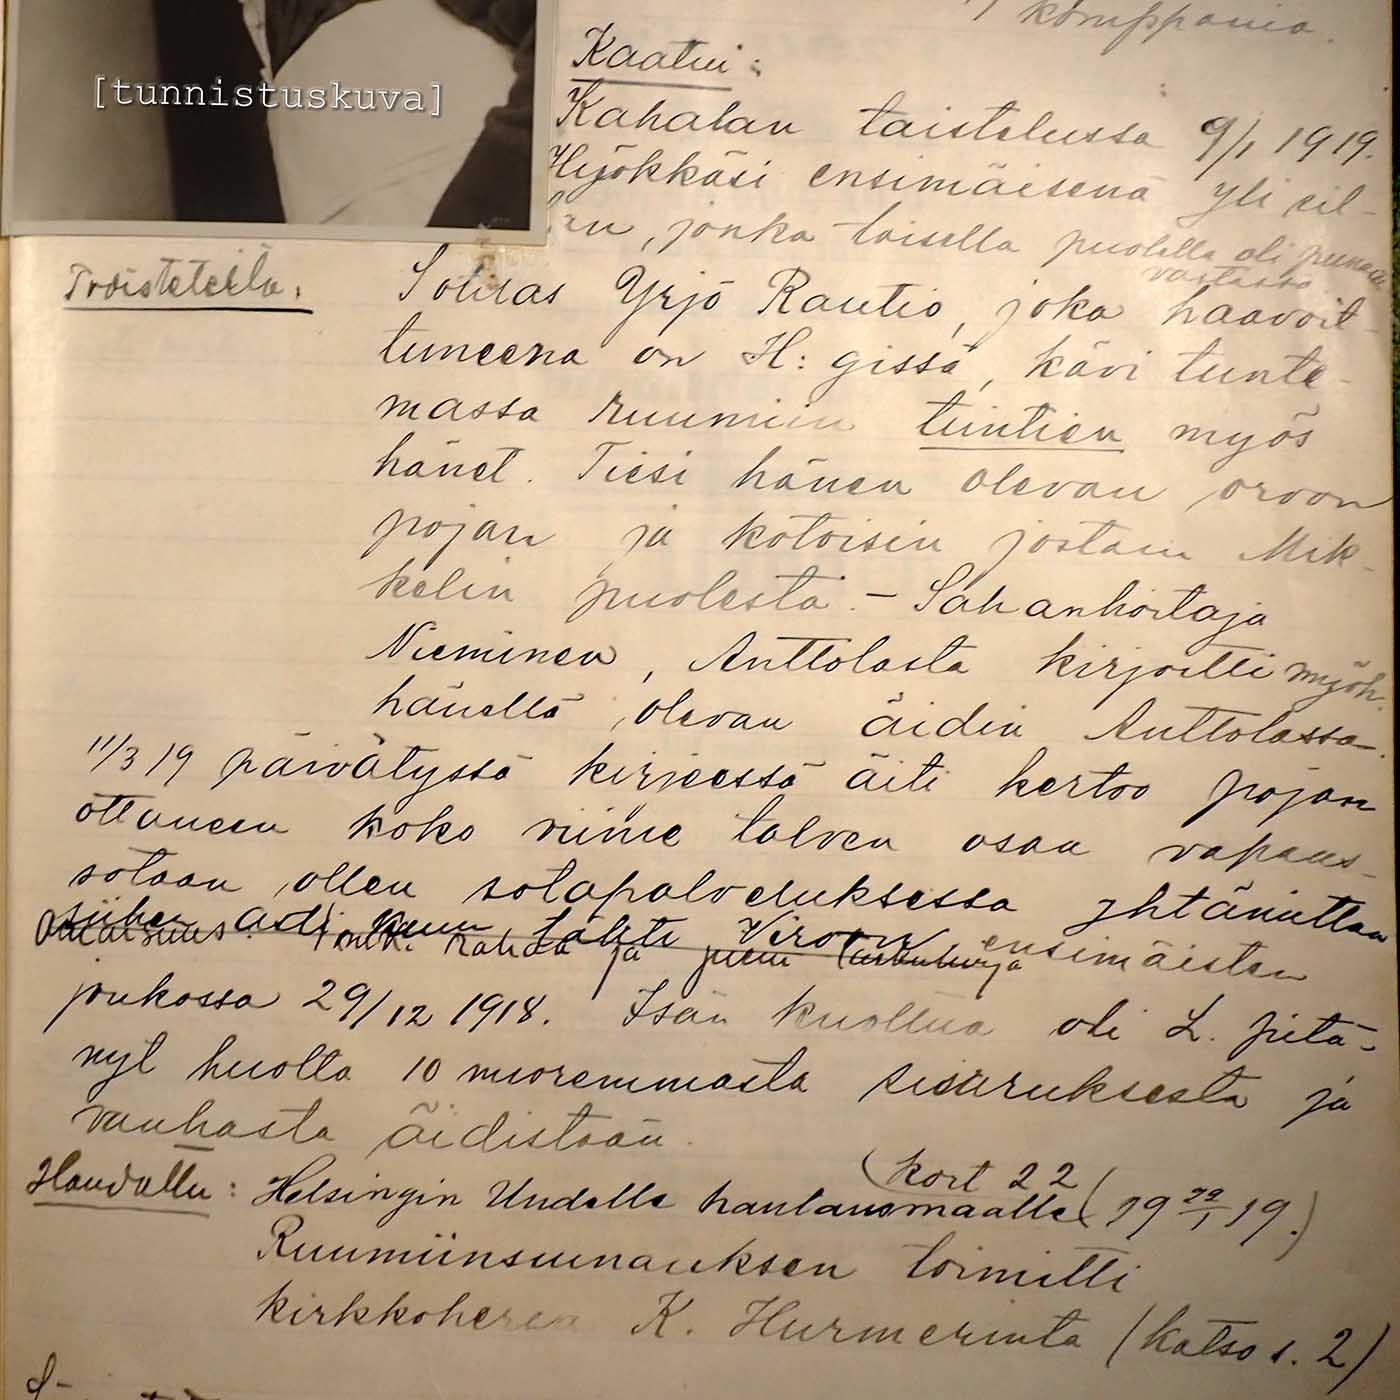 komppania.
[tunnistuskuva]
Kaatui:
Kahalan taistelussa 9/1 1919.
Hyökkäsi ensimäisenä yli sil-
lan, jonka toisella puolella oli punai
vastassa.
Todisteella: Sotilas Yrjö Rautio, joka haavoit-
tuneena on H:gissä, kävi tunte-
massa ruumiin tuntien myös
hänet. Tiesi hänen olevan orvon
pojan ja kotoisin jostain Mik-
kelin puolesta. – Sahanhoitaja
Nieminen, Anttolasta kirjoitti myöh.
hänellä olevan äidin Anttolassa.
11/3 19 päivätyssä kirjeessä äiti kertoo pojan
ottaneen koko viime talven osaa vapaus-
sotaan, ollen sotapalveluksessa yhtämittaa
siihen asti kuin lähti Viroon ensimäisten
Omaisuus: 1 mk. rahaa ja pieni taskukirja
joukossa 29/12 1918. Isän kuoltua oli L. pitä-
nyt huolta 10 nuoremmasta sisaruksesta ja
vanhasta äidistään.
(kort 22
Haudattu: Helsingin Uudelle hautausmaalle (19 22/1 19.)
Ruumiinsiunauksen toimitti
kirkkoherra K. Hurmerinta (katso s. 2)